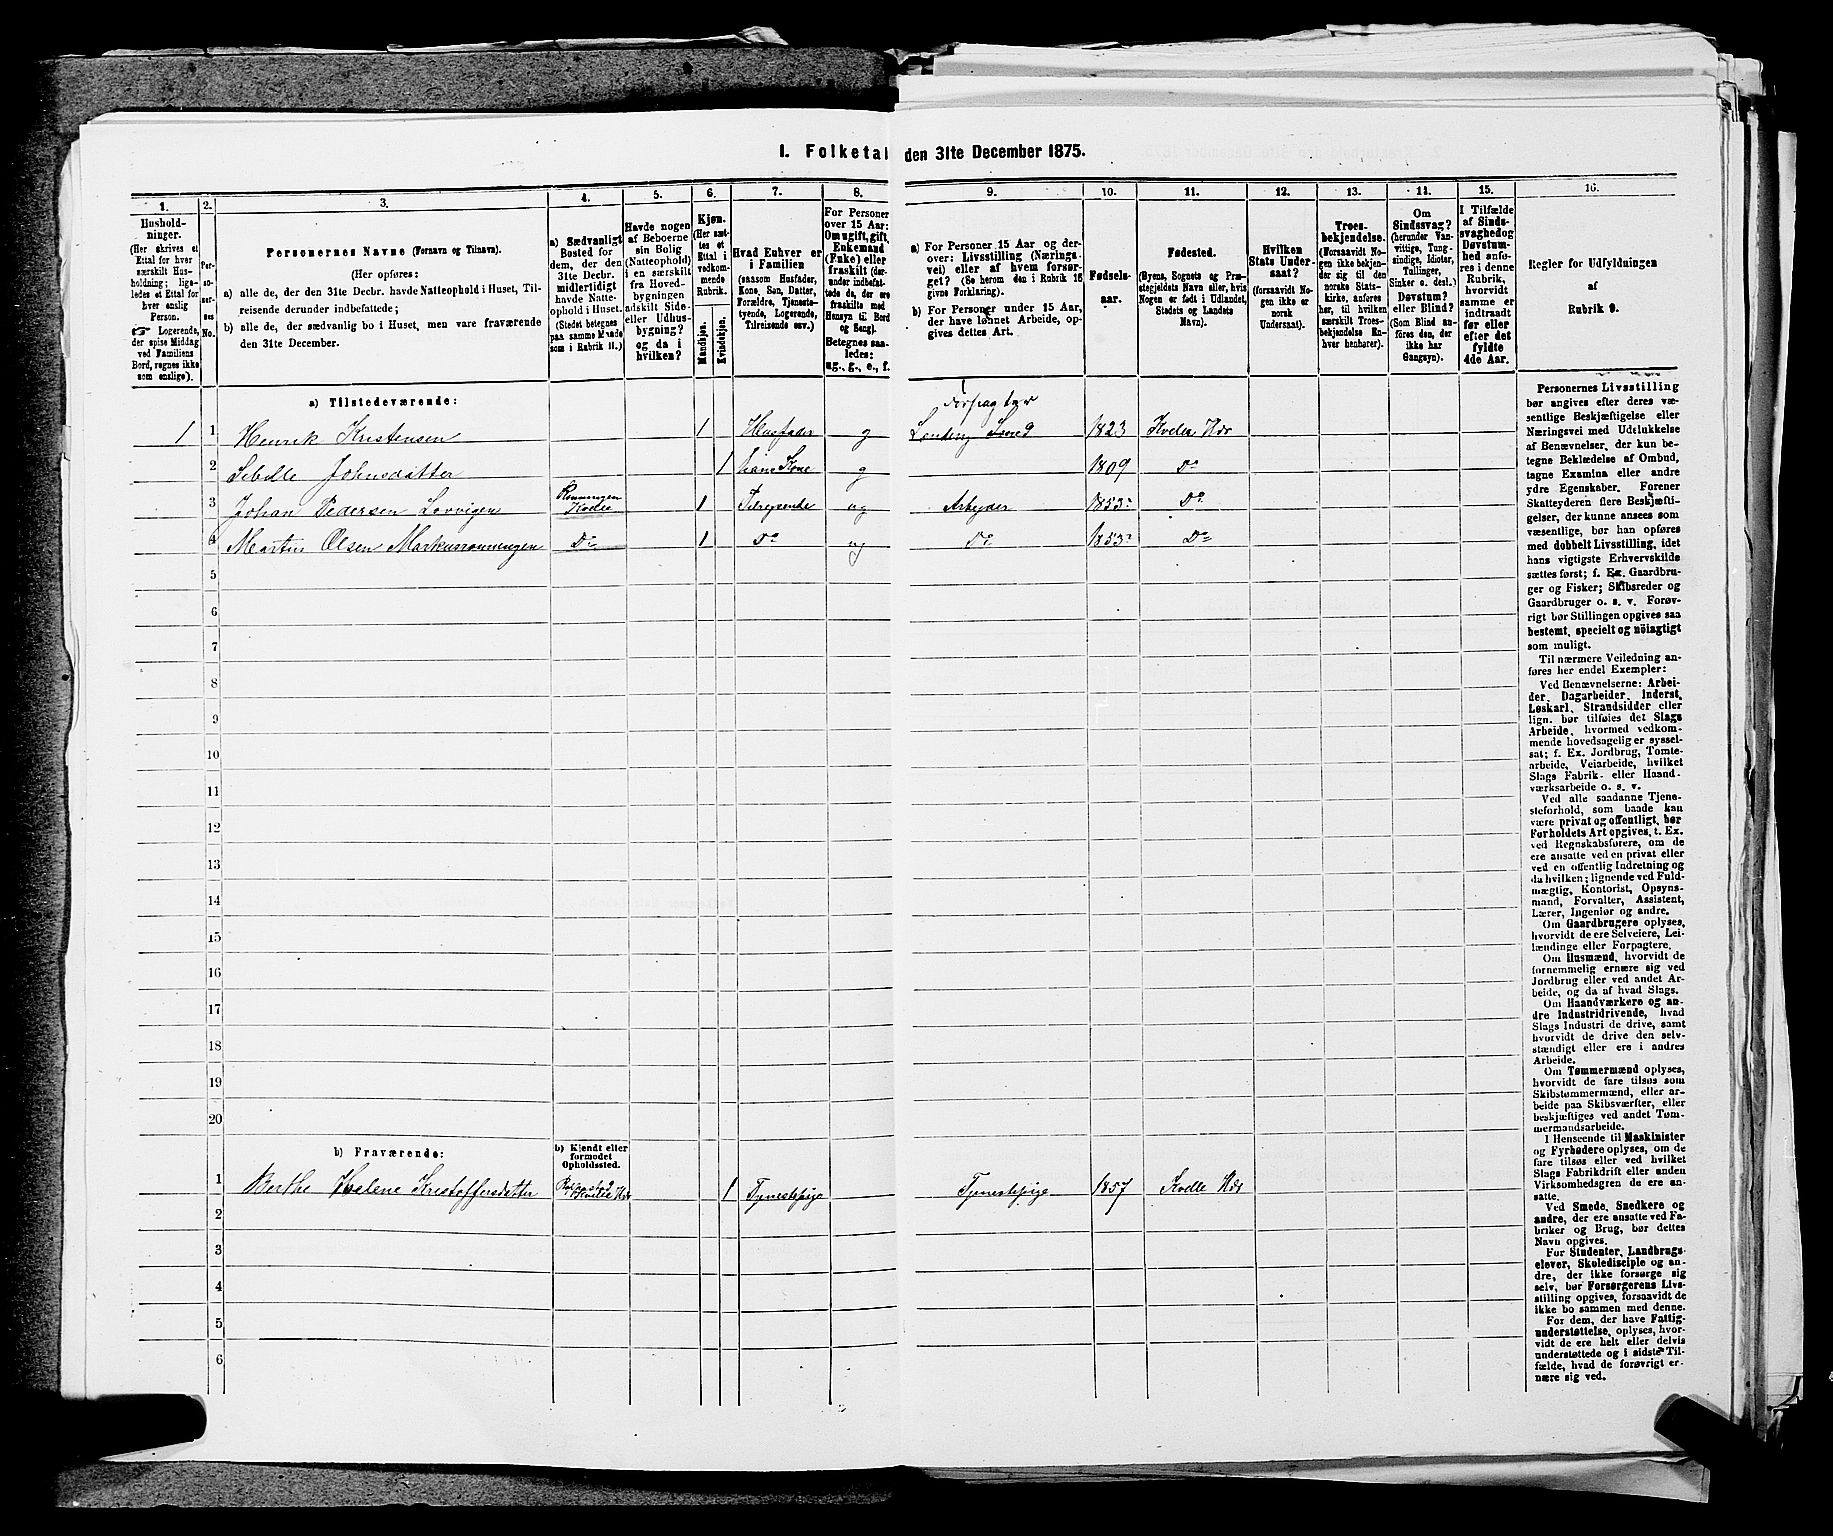 I. Folketal den 31te December 1875.
1. 2. 3. 4. 5. 6. 7. 8. 9. 10. 11. 12. 13. 14. 15. 16.
Hushold-
ninger.
(Her skrives et
Ettal for hver
særskilt Hus-
holdning; lige-
ledes et Ettal for
hver enslig
Person.
☞ Logerende,
der spise Middag
ved Familiens
Bord, regnes ikke
som enslige).
Per-
so-
ner-
nes
No.
Personernes Navne (Fornavn og Tilnavn).
(Her opføres:
a) alle de, der den 31te Decbr. havde Natteophold i Huset, Til-
reisende derunder indbefattede;
b) alle de, der sædvanlig bo i Huset, men vare fraværende
den 31te December.
a) Sædvanligt
Bosted for
dem, der den
31te Decbr.
midlertidigt
havde Natte-
ophold i Huset.
(Stedet betegnes
paa samme Maade
som i Rubrik 11.)
Havde nogen
af Beboerne
sin Bolig
(Natteophold)
i en særskilt
fra Hoved-
bygningen
adskilt Side-
eller Udhus-
bygning?
og da i
hvilken?
Kjøn.
(Her sæt-
tes et
Ettal i
vedkom-
mende
Rubrik.
Mandkjøn.
Kvindekjøn.
Hvad Enhver er
i Familien
(saasom Husfader,
Kone, Søn, Datter,
Forældre, Tjeneste-
tyende, Logerende,
Tilreisende osv.)
For Personer
over 15 Aar:
Om ugift, gift,
Enkemand
(Enke) eller
fraskilt (der-
under indbefat-
tede de, der ere
fraskilte med
Hensyn til Bord
og Seng).
Betegnes saa-
ledes:
ug., g., e., f.
a) For Personer 15 Aar og der-
over: Livsstilling (Nærings-
vei) eller af hvem forsør-
get? (Se herom den i Rubrik 16
givne Forklaring).
b) For Personer under 15 Aar,
der have lønnet Arbeide, op-
gives dettes Art.
Fødsels-
aar.
Fødested.
(Byens, Sognets og Præ-
stegjeldets Navn eller, hvis
Nogen er født i Udlandet,
Stedets og Landets
Navn).
Hvilken
Stats Under-
saat?
(forsaavidt No-
gen ikke er
norsk
Undersaat).
Troes-
bekjendelse.
(Forsaavidt No-
gen ikke bekjen-
der sig til den
norske Stats-
kirke, anføres
her, til hvilken
særskilt Troes-
bekjendelse En-
hver henhører).
Om
Sindssvag?
(herunder Van-
vittige, Tung-
sindige, Idioter,
Tullinger,
Sinker o. desl.)
Døvstum?
eller Blind?
(Som Blind an-
føres den, der
ikke har
Gangsyn).
I Tilfælde
af Sinds-
svaghed og
Døvstum-
hed anfø-
res i denne
Rubrik,
hvorvidt
samme er
indtraadt
før eller
efter det
fyldte
4de Aar.
Regler for Udfyldningen
af
Rubrik 9.
a) Tilstedeværende:
1 1 Henrik Kristensen 1 Husfader g forpagter 1823 Kvelle Hdr
2 Sebille Johnsdatter 1 hans Kone g 1809 Do
3 Johan Pedersen Lovvigen Rønningen Kvelle 1 Tilreisende ug Arbeyder 1853 Do
4 Martin Olsen Markusrønningen Do 1 Do ug Do 1853 Do
5
6
7
8
9
10
11
12
13
14
15
16
17
18
19
20
b) Fraværende:
b) Kjendt eller
formodet
Opholdssted.
1 Berthe Helene Kristoffersdatter Kvelle Hdr 1 Tjenestepige Tjenestepige 1857 Kvelle Hdr
2
3
4
5
6
Personernes Livsstilling
bør angives efter deres væ-
sentlige Beskjæftigelse eller
Næringsvei med Udelukkelse
af Benævnelser, der kun be-
tegne Beklædelse af Ombud,
tagne Examina eller andre
ydre Egenskaber. Forener
Skatteyderen flere Beskjæfti-
gelser, der kunne ansees som
væsentlige, bør han opføres
med dobbelt Livsstilling, idet
hans vigtigste Erhvervskilde
sættes først; f. Ex. Gaardbru-
ger og Fisker; Skibsreder og
Gaardbruger o. s. v. Forøv-
rigt bør Stillingen opgives saa
bestemt, specielt og nöiagtigt
som muligt.
Til nærmere Veiledning an-
føres her endel Exempler:
Ved Benævnelserne: Arbei-
der, Dagarbeider, Inderst,
Løskarl, Strandsidder eller
lign. bør tilføies det Slags
Arbeide, hvormed vedkom-
mende hovedsagelig er syssel-
sat; f. Ex. Jordbrug, Tomte-
arbeide, Veiarbeide, hvilket
Slags Fabrik- eller Haand-
værksarbeide o. s. v.
Ved alle saadanne Tjene-
steforhold, som baade kan
være privat og offentligt, bør
Forholdets Art opgives, t. Ex.
ved Regnskabsførere, om de
ere ansatte ved en privat eller
ved en offentlig Indretning og
da hvilken; lignende ved Fuld-
mægtig, Kontorist, Opsyns-
mand, Forvalter, Assistent,
Lærer, Ingeniør og andre.
Om Gaardbrugere oplyses,
hvorvidt de ere Selveiere, Lei-
lændinge eller Forpagtere.
Om Husmænd, hvorvidt de
fornemmelig ernære sig ved
Jordbrug eller ved andet Ar-
beide, og da af hvad Slags.
Om Haandværkere og an-
dre Industridrivende, hvad
Slags Industri de drive, samt
hvorvidt de drive den selv-
stændigt eller ere i andres
Arbeide.
Om Tømmermænd oplyses,
hvorvidt de fare tilsøs som
Skibstømmermænd, eller ar-
beide paa Skibsværfter, eller
beskjæftiges ved andet Tøm-
mermandsarbeide.
I Henseende til Maskinister
og Fyrbødere oplyses, om de
fare tilsøs eller ved hvilket
Slags Fabrikdrift eller anden
Virksomhedsgren de ere an-
satte.
Ved Smede, Snedkere og
andre, der ere ansatte ved Fa-
briker og Brug, bør dettes
Navn opgives.
For Studenter, Landbrugs-
elever, Skoledisciple og an-
dre, der ikke forsørge sig
selv, bør Forsørgerens Livs-
stilling opgives, forsaavidt de
ikke bo sammen med denne.
For dem, der have Fattig-
understøttelse, oplyses, hvor-
vidt de ere helt eller delvis
understøttede og i sidste Til-
fælde, hvad de forøvrigt er-
nære sig ved.